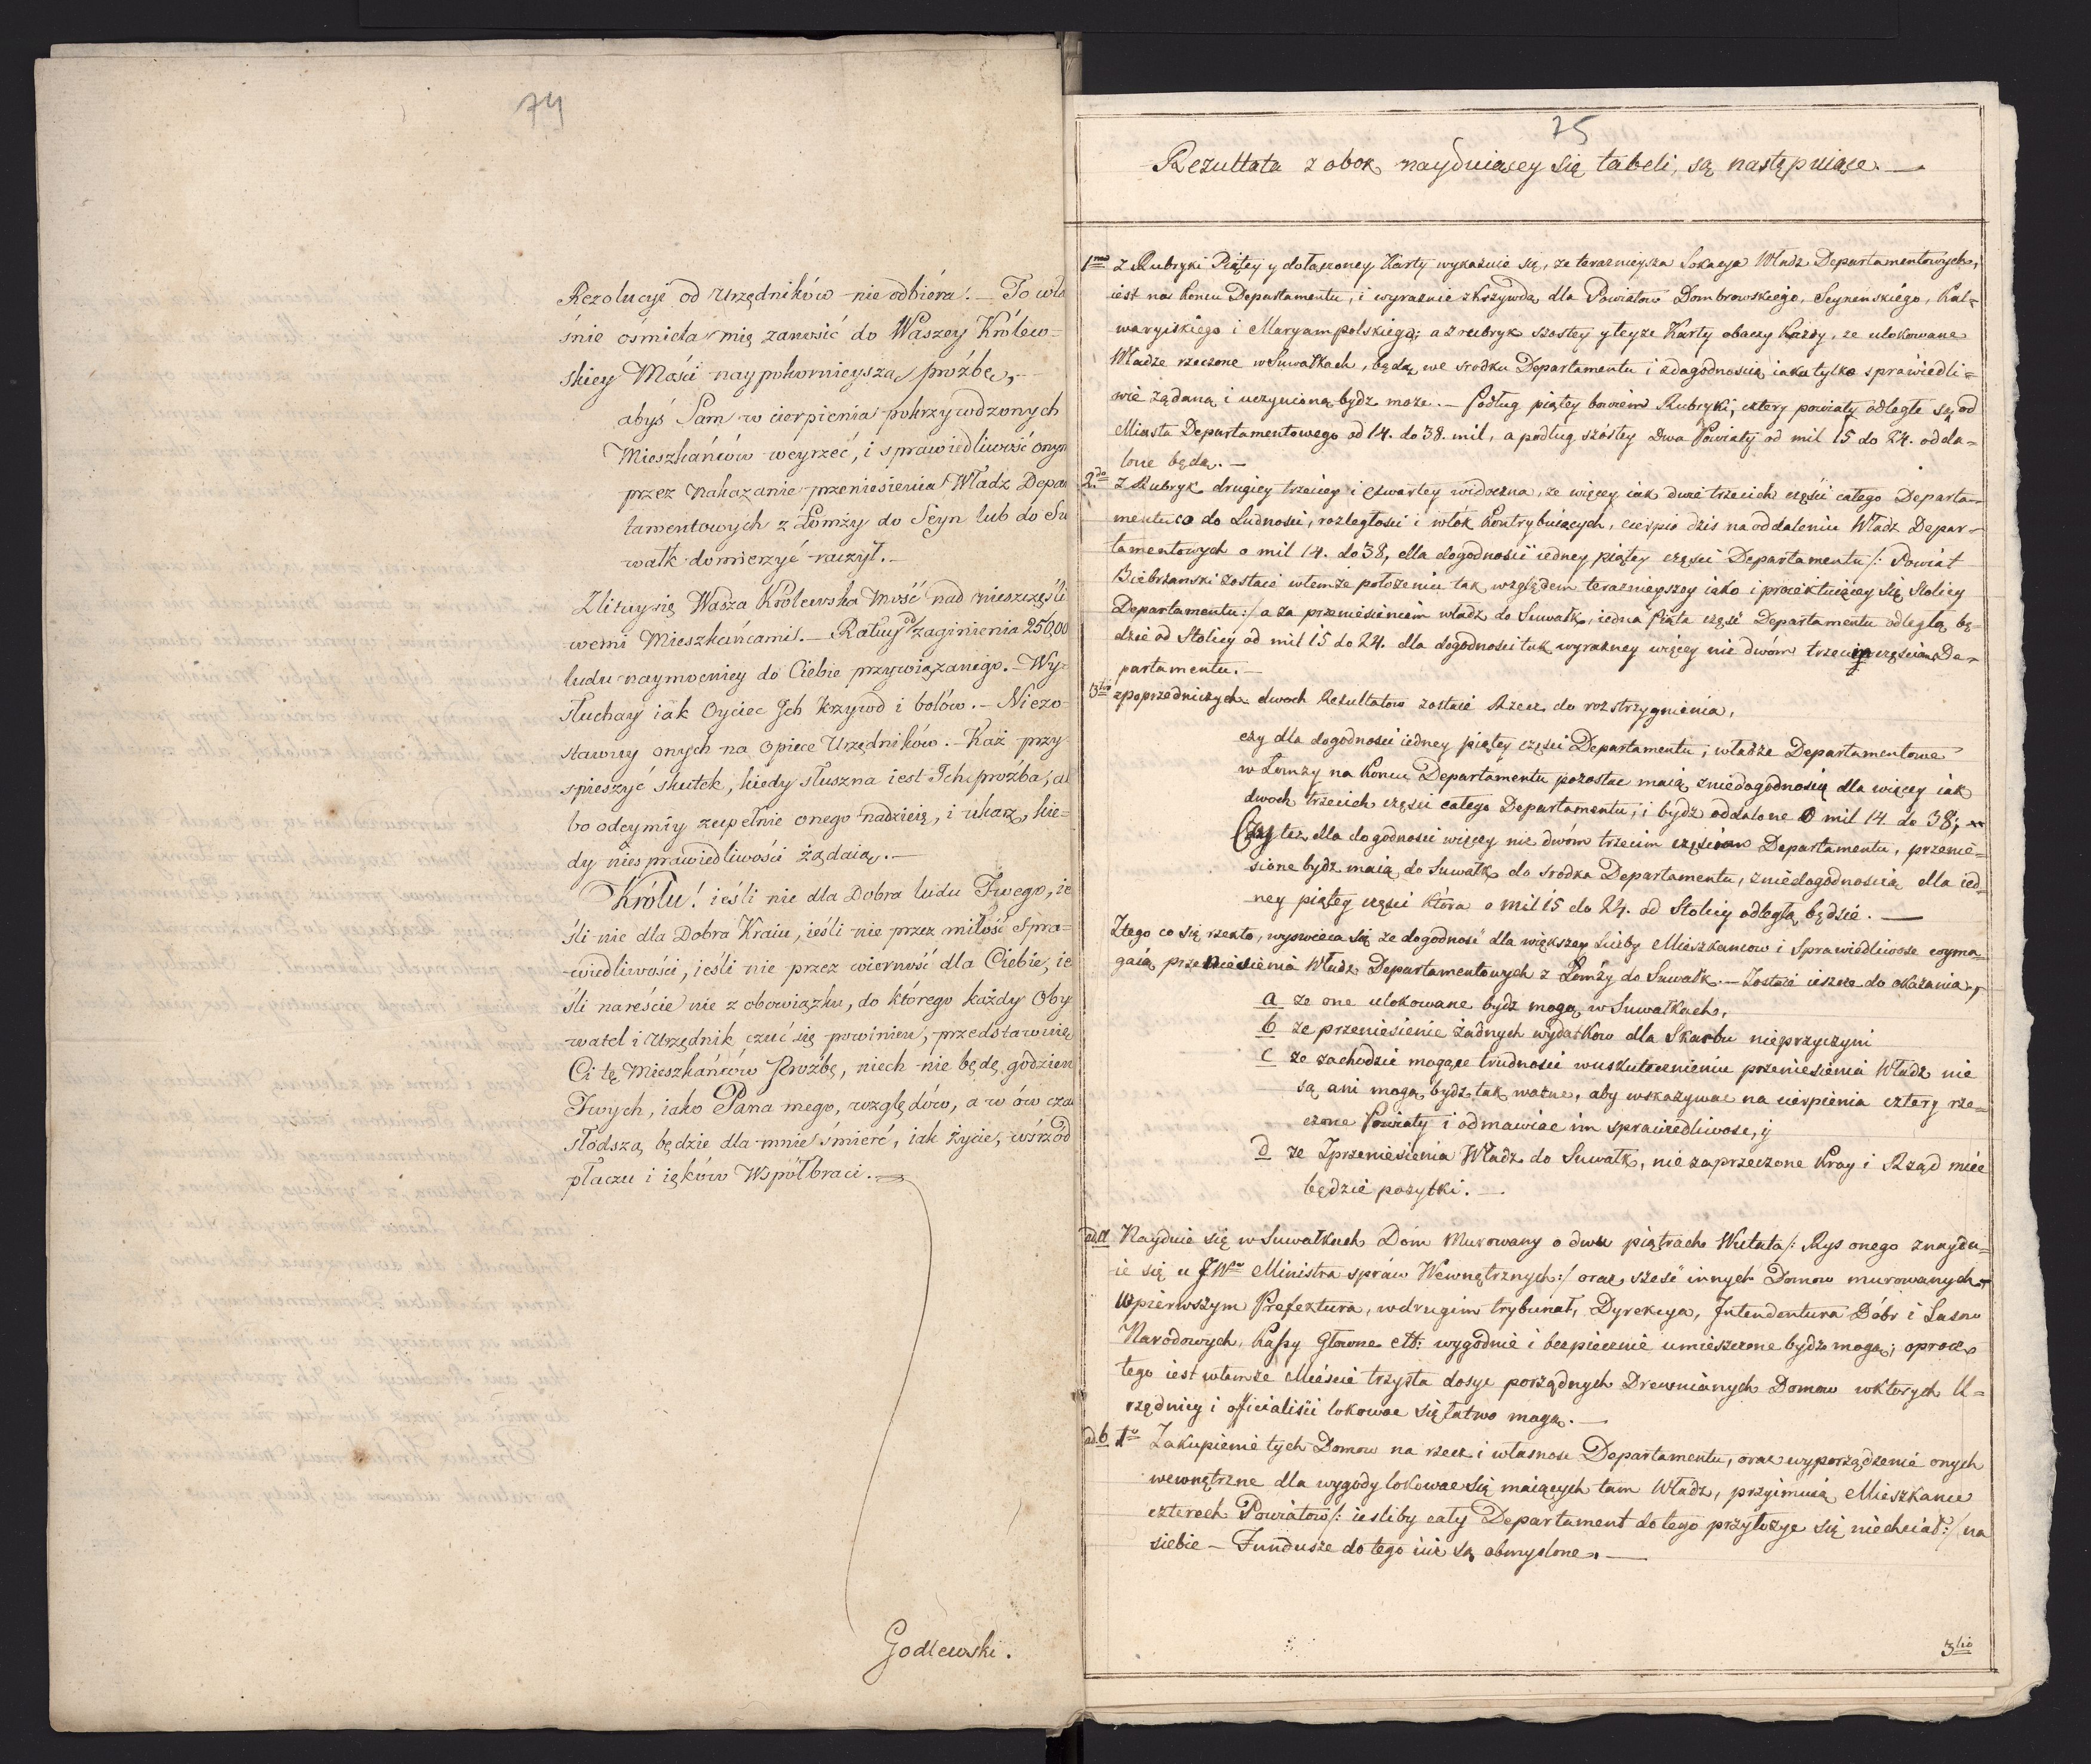 74
Rezolucyi od Urzędników nie odbiéra. — To wła
śnie ośmiela mię zanosić do Waszey Królew-
skiey Mości naypokornieyszą proźbę,
abyś Sam w cierpienia pokrzywdzonych
Mieszkańców weyrzeć, i sprawiedliwość onym
przez nakazanie przeniesienia Władz Depar
tamentowych z Łomży do Seyn lub do Su
wałk domierzyć raczył. —
Zlituy się Wasza Królewska Mość nad nieszczęśli
wemi Mieszkańcami. — Ratuy od zaginienia 250,00
ludu naymocniey do Ciebie przywiązanego. — Wy-
słuchay iak Oyciec Ich krzywd i bolów. — Niezo-
stawuy onych na opiece Urzędników. — Każ przy-
spieszyć skutek, kiedy słuszna iest Ich proźba, al
bo odeymiy zupełnie onego nadzieię, i ukarz, kie-
dy niesprawiedliwości żądaią. —
Królu! ieśli nie dla Dobra ludu Twego, ie
śli nie dla Dobra Kraiu, ieśli nie przez miłość Spra-
wiedliwości, ieśli nie przez wierność dla Ciebie, ie
śli nareście nie z obowiązku, do którego każdy Oby
watel i Urzędnik czuć się powinien, przedstawuię
Ci tę Mieszkańców Proźbę, niech nie będę godzien
Twych, iako Pana mego, względów, a w ów czas
słodszą będzie dla mnie śmierć, iak życie, wśrzód
płaczu i ięków Współbraci. —
Godlewski.
75
Rezultata z obok nayduiącey się tabeli, są następuiące. —
1mo Z Rubryki Piątey y dołączoney Karty wykazuie się, że teraznieysza Lokacya Władz Departamentowych,
iest na koncu Departamentu, i wyraznie z krzywdą dla Powiatow Dombrowskiego, Seynenskiego, Kal-
waryiskiego i Maryampolskiego; a z rubryk szostey y teyże Karty obaczy każdy, że ulokowane
Władze rzeczone w Suwałkach, będą we srodku Departamentu i z dogodnoscią iaka tylko sprawiedli-
wie żądaną i uczynioną bydz może. — Podług piątey bowiem Rubryki, cztery powiaty odległe są od
Miasta Departamentowego od 14. do 38. mil, a podług szóstey Dwa Powiaty od mil 15 do 24. odda-
lone będą. —
2do Z Rubryk drugiey trzeciey i czwartey widoczna, że więcey iak dwie trzecich części całego Departa-
mentu co do Ludności, rozległości i włók kontrybuiących, cierpią dzis na oddaleniu Władz Depar-
tamentowych o mil 14. do 38, dla dogodności iedney piątey części Departamentu /: Powiat
Biebrzanski zostaie w temże położeniu tak względem teraznieyszey iako i proiektuiącey się Stolicy
Departamentu :/ a za przeniesieniem władz do Suwałk, iedna piąta część Departamentu odległą bę-
dzie od Stolicy od mil 15 do 24. dla dogodności tak wyrazney więcey niż dwóm trzecim częściom De-
partamentu. —
3tio z poprzedniczych dwoch Rezultatow zostaie Rzecz do rozstrzygnienia,
czy dla dogodności iedney piątey części Departamentu, władze Departamentowe
w Łomży na koncu Departamentu pozostac maią z niedogodnością dla więcey iak
dwoch trzecich części całego Departamentu, i bydz oddalone o mil 14. do 38;
Czy też dla dogodności więcey niż dwóm trzecim częściom Departamentu, przenie-
sione bydz maią do Suwałk do srodka Departamentu, z niedogodnością dla ied-
ney piątey części która o mil 15 do 24. od Stolicy odległą będzie. —
Z tego co się rzekło, wyswieca się że dogodność dla większey Liczby Mieszkancow i Sprawiedliwosc wyma-
gaią przeniesienia Władz Departamentowych z Łomży do Suwałk. — Zostaie ieszcze do okazania,
a że one ulokowane bydz mogą w Suwałkach,
b że przeniesienie żadnych wydatkow dla Skarbu nieprzyczyni
c że zachodzić mogące trudności w uskutecznieniu przeniesienia Władz nie
są ani mogą bydz tak wazne, aby wskazywac na cierpienia cztery rze-
czone Powiaty i odmawiac im sprawiedliwosc, y
d że z przeniesienia Władz do Suwałk, nie zaprzeczone Kray i Rząd miec
będzie pożytki. —
ad a Nayduie się w Suwałkach Dom Murowany o dwu piątrach Wututa /: Rys onego znaydu-
ie się u JWo Ministra spraw Wewnętrznych :/ oraz szesc innych Domow murowanych
w pierwszym Prefektura, w drugim trybunał, Dyrekcya, Intendentura Dóbr i Lasow
Narodowych, Kassy Głowne ett: wygodnie i bezpiecznie umieszczone bydz mogą; oprocz
tego iest w temże Miescie trzysta dosyc porządnych Drewnianych Domow w ktorych U-
rzędnicy i officialisci lokowac się łatwo mogą. —
ad b 1o Zakupienie tych Domow na rzecz i własnosc Departamentu, oraz wyporządzenie onych
wewnętrzne dla wygody lokowac się maiących tam Władz, przyimuią Mieszkancy
czterech Powiatow /: iesliby cały Departament do tego przyłożyc się niechciał :/ na
siebie — Fundusze do tego iuż są obmyslone. —
3tio